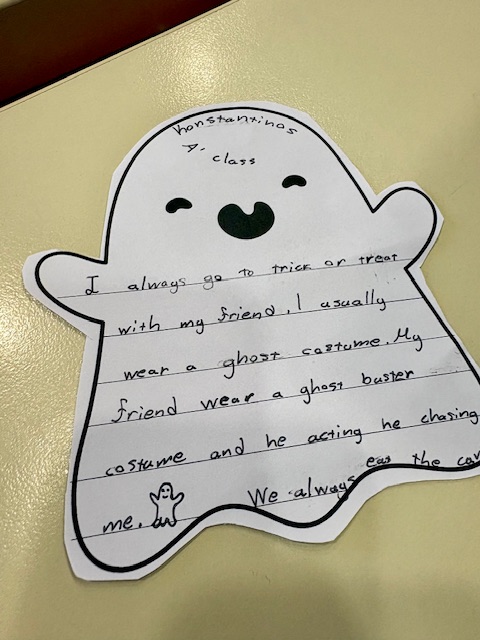 Konstantinos
A' class
I always go to trick or treat
with my friend. I usually
wear a ghost costume. My
friend wear a ghost buster
costume and he acting he chasing
me. We always eat the